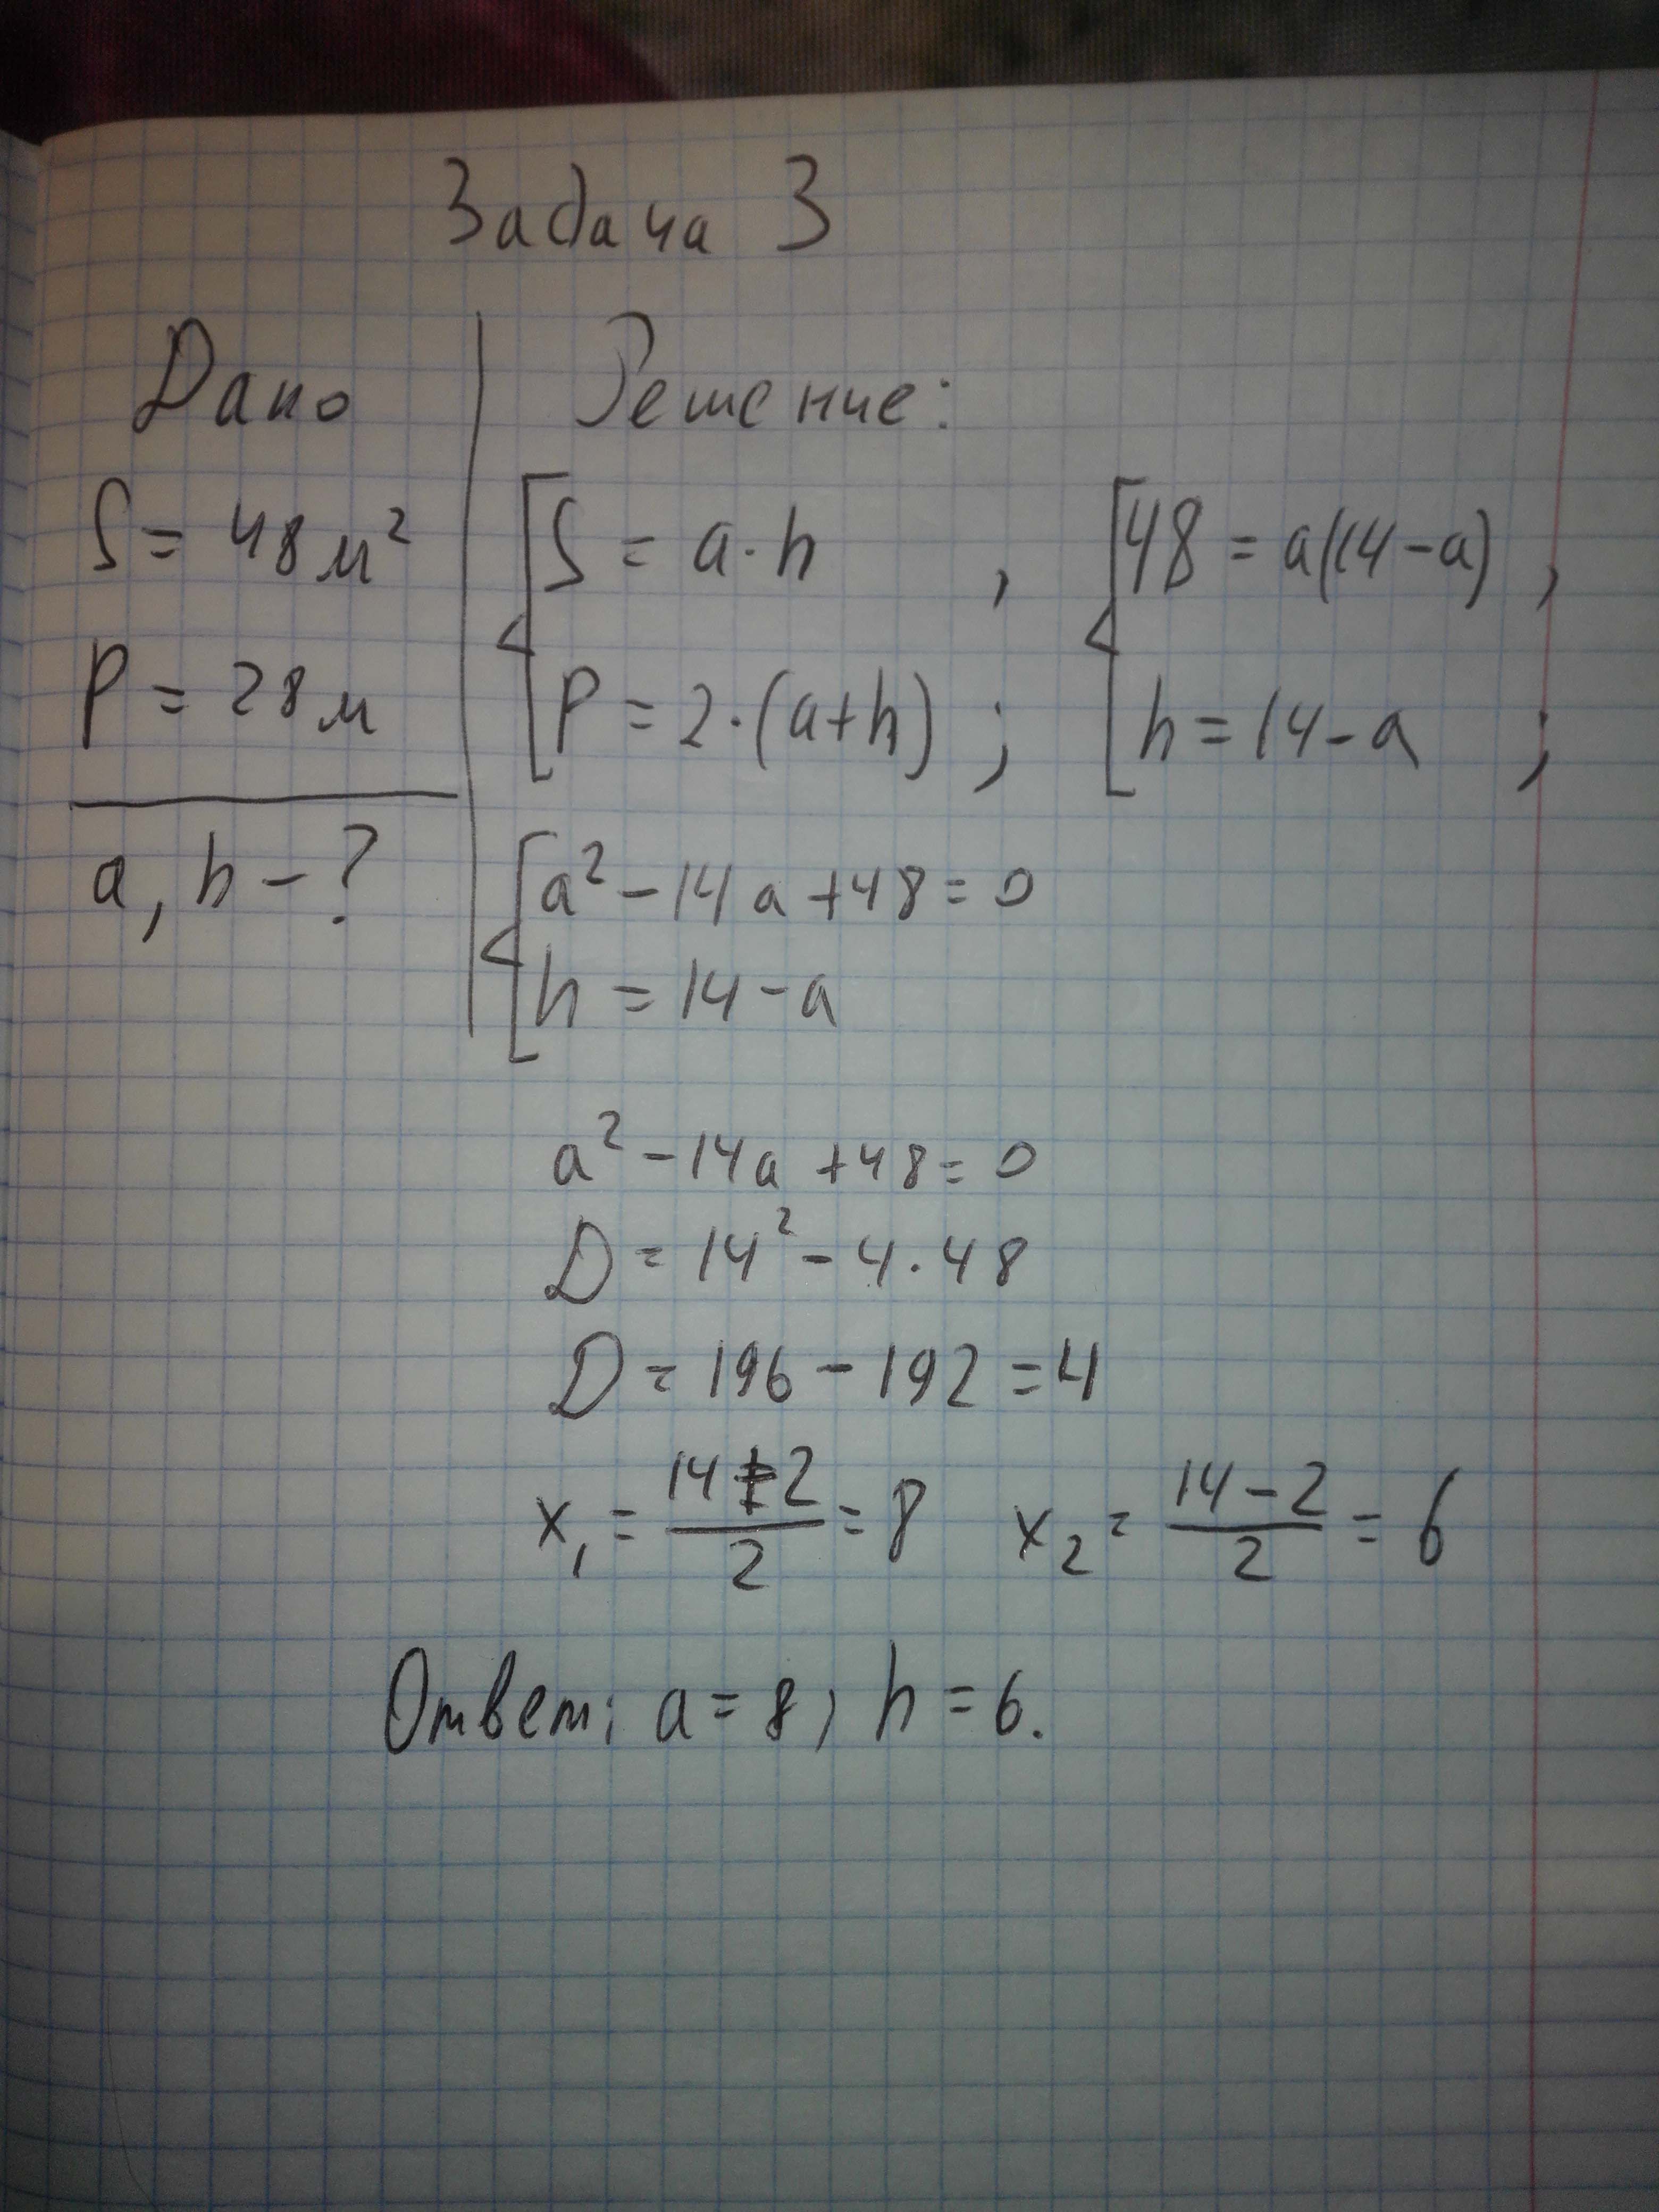 Задача 3
Дано
S = 48 м²
P = 28 м
a, h - ?
Решение:
{ S = a · h ,
P = 2 · (a + h) ;
{ 48 = a(14 - a) ,
h = 14 - a ;
{ a² - 14a + 48 = 0
h = 14 - a
a² - 14a + 48 = 0
D = 14² - 4 · 48
D = 196 - 192 = 4
x₁ = (14 + 2)/2 = 8 x₂ = (14 - 2)/2 = 6
Ответ: a = 8, h = 6.